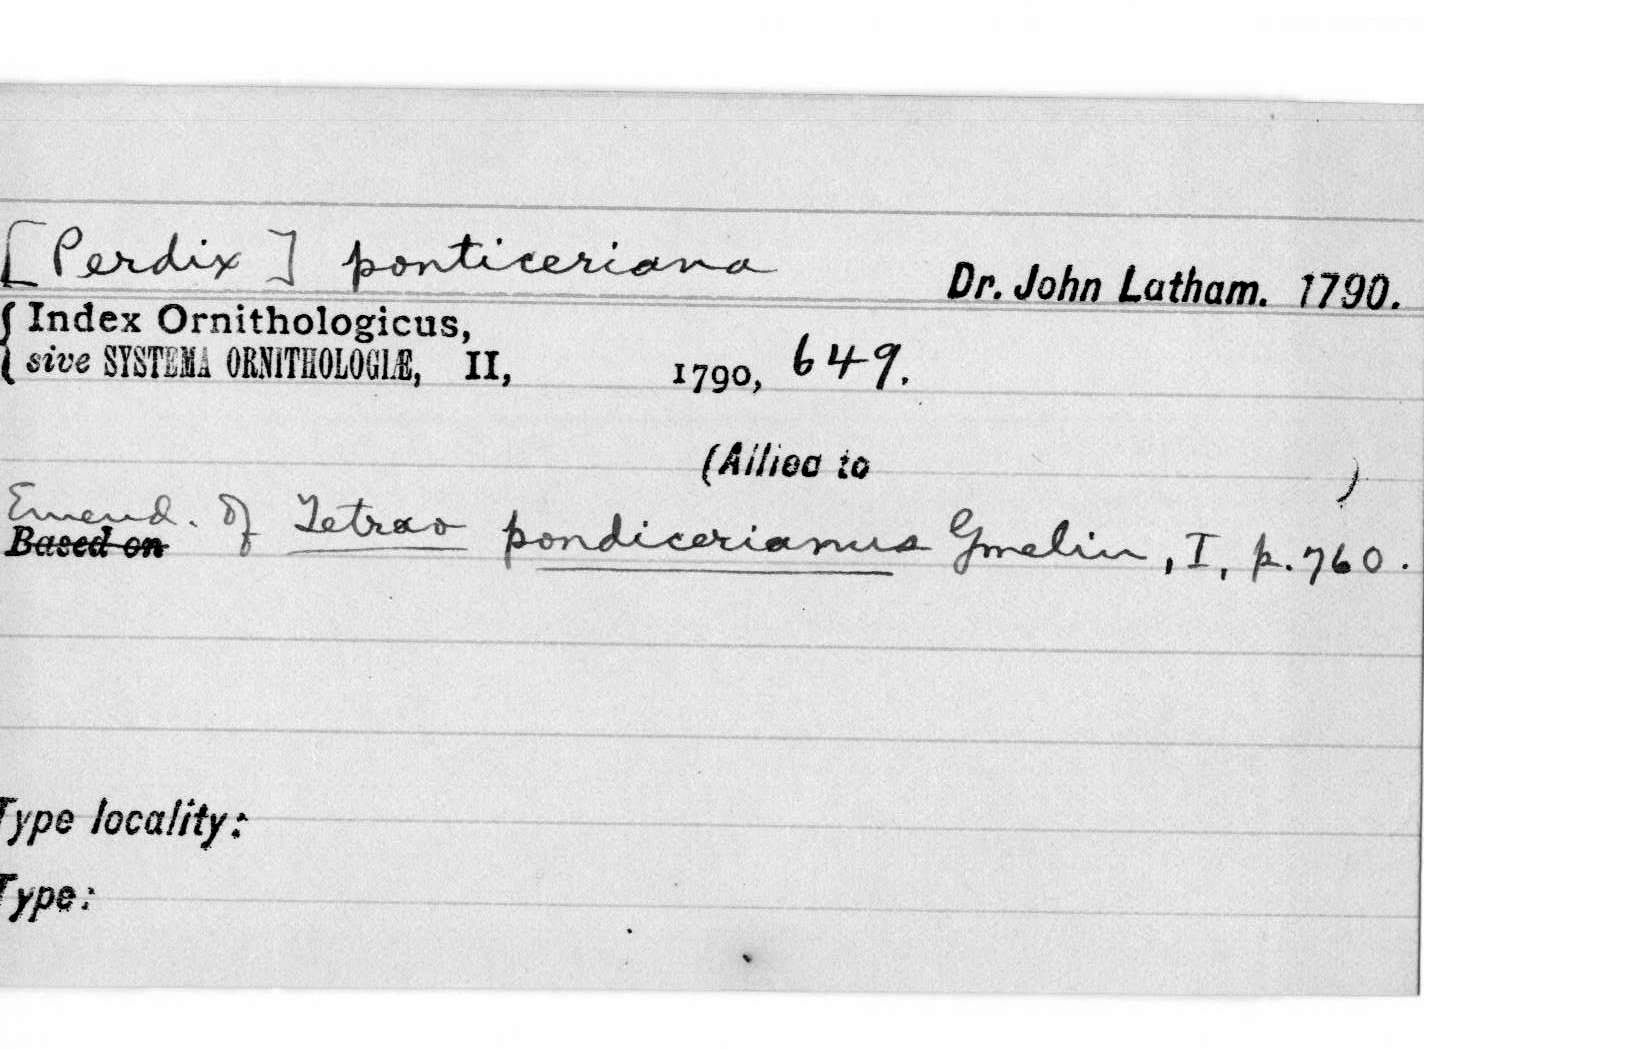 [Perdix] ponticeriana Dr. John Latham. 1790.
Index Ornithologicus,
sive SYSTEMA ORNITHOLOGIÆ, II, 1790, 649.
(Allied to )
Emend. of Tetrao pondicerianus Gmelin, I, p. 760.
Based on
Type locality:
Type: